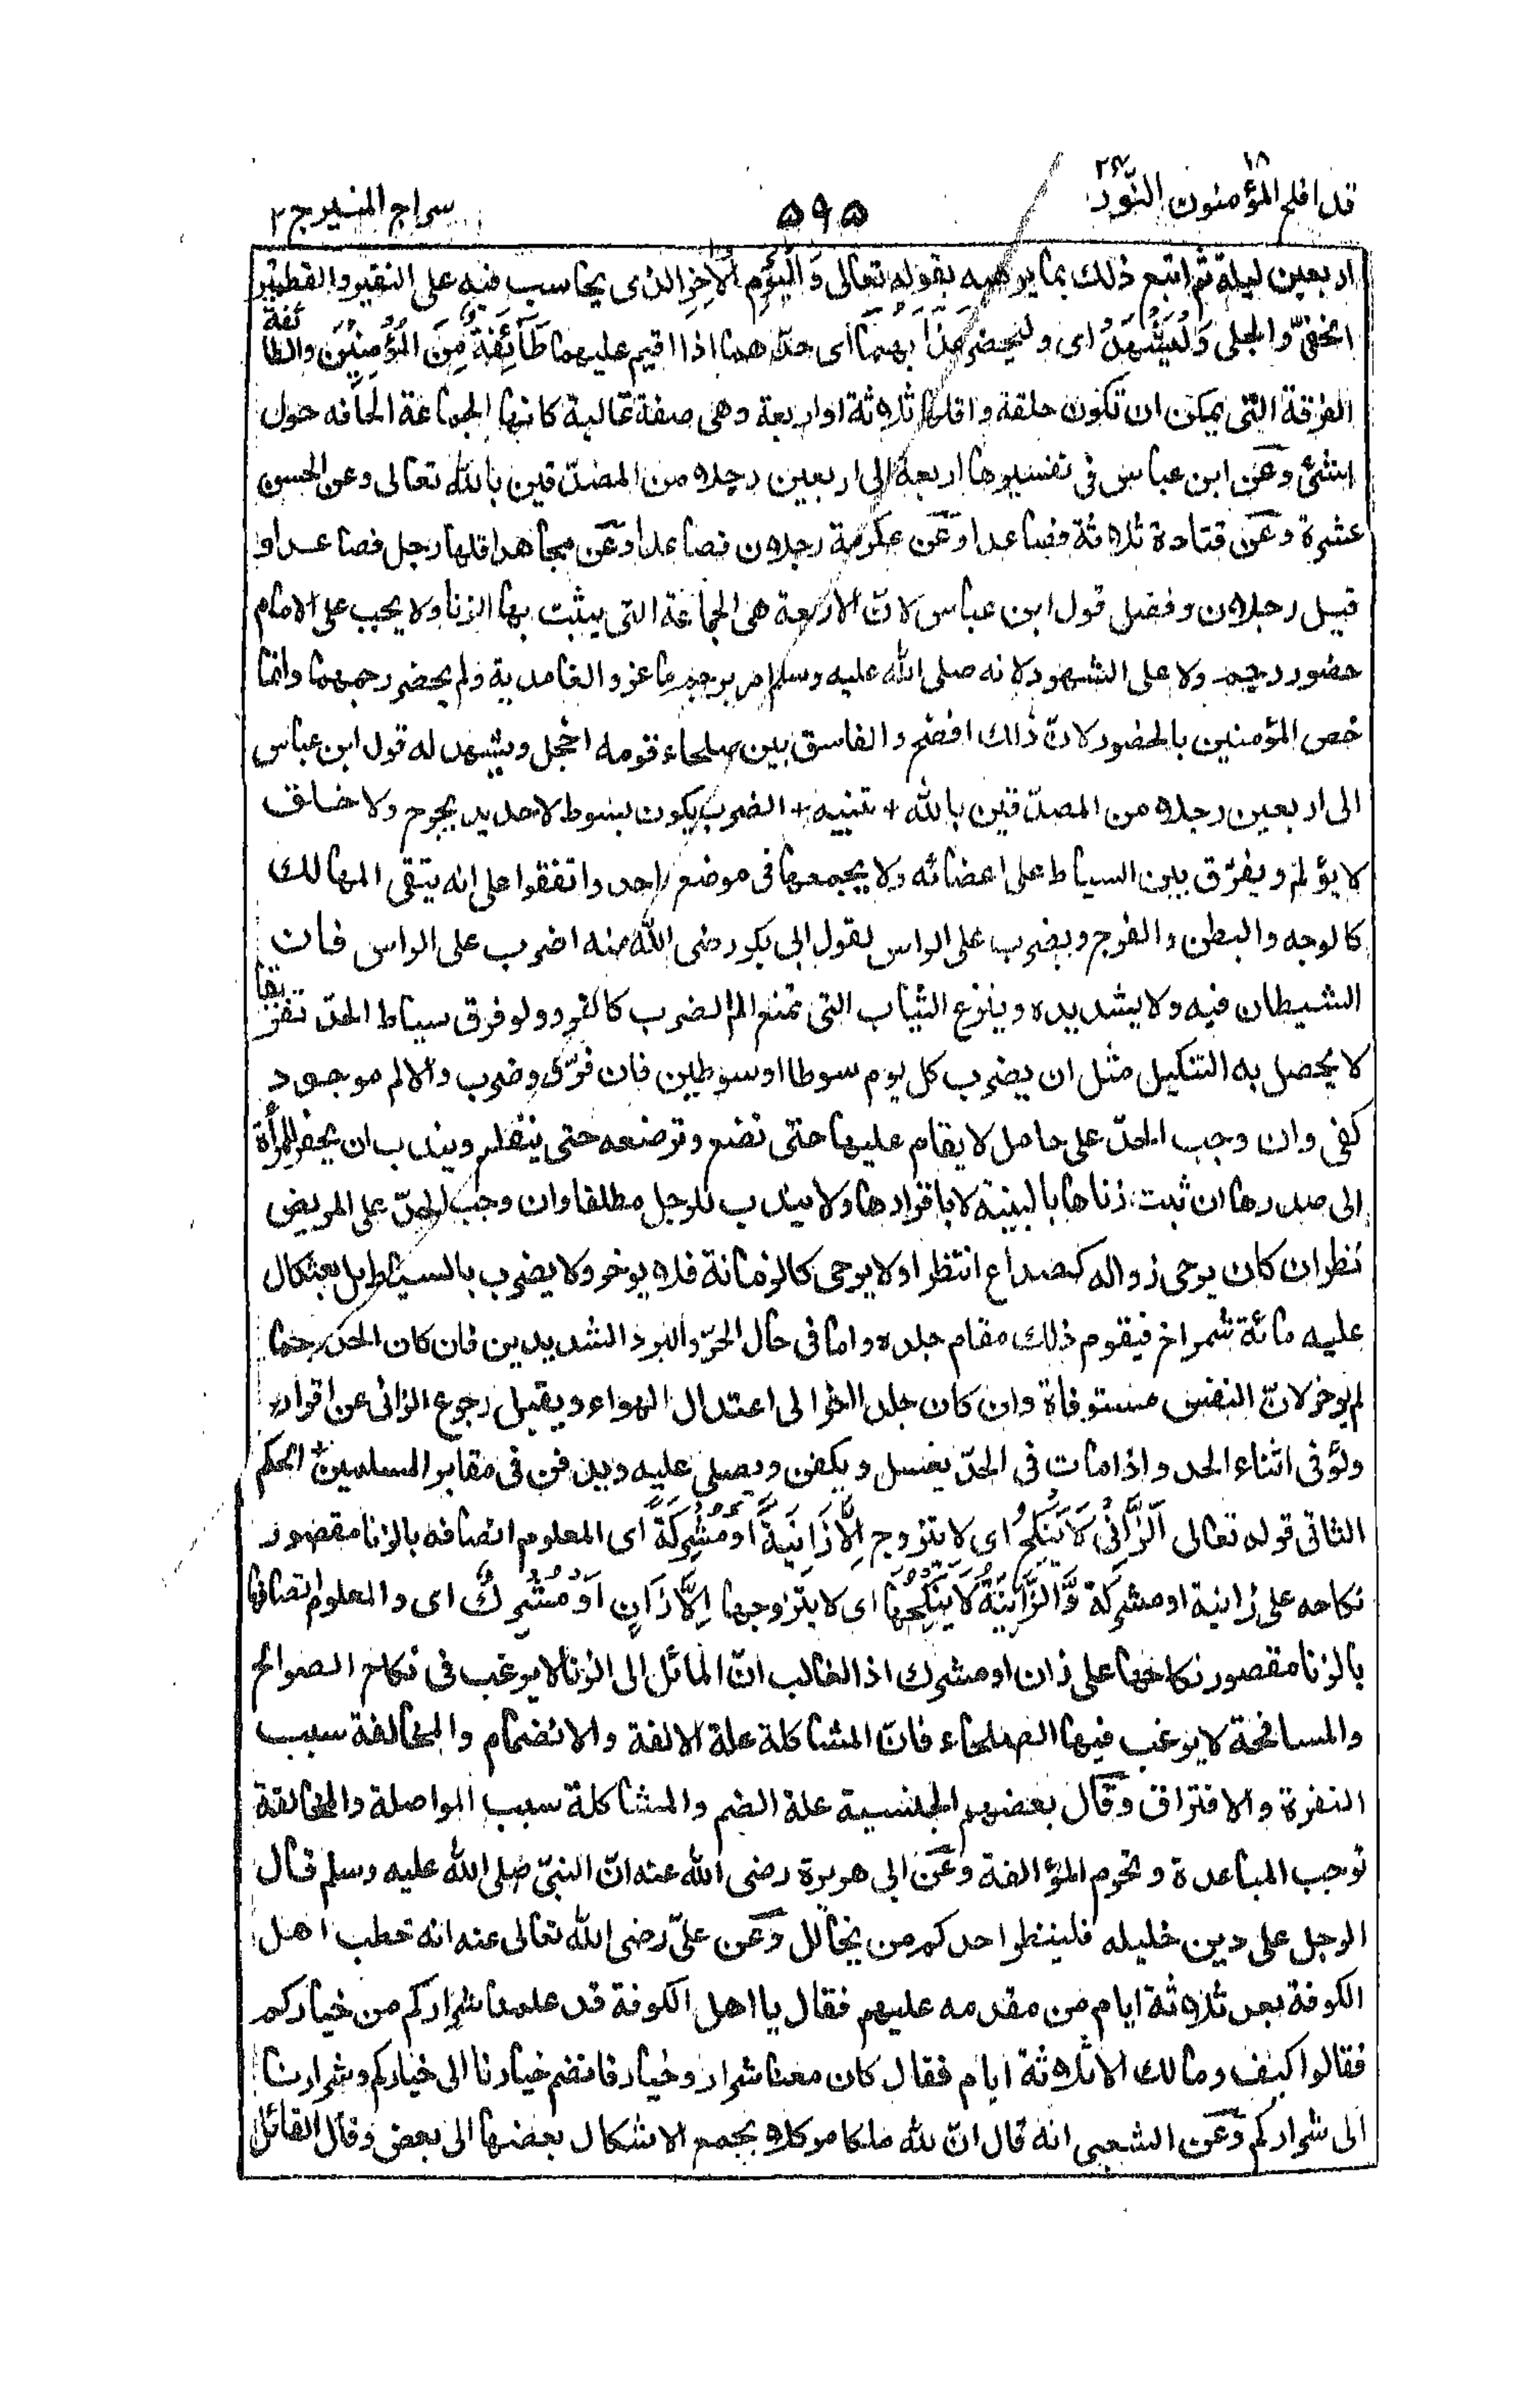 قد افلح المؤمنون ١٨ النّور ٢٤
٥٩٥
سراج المنير ج ٢
اربعين ليلة ثم اتبع ذلك بما يرهبه بقوله تعالى وَالْيَوْمِ الْاٰخِرِ الذى يحاسب فيه على النقير والقطمير
الخفىّ والجلى وَلْيَشْهَدْ اى وليحضر عَذَابَهُمَا اى حدّهما اذا اقيم عليهما طَآئِفَةٌ مِّنَ الْمُؤْمِنِيْنَ والطائفة
الفرقة التى يمكن ان تكون حلقة واقلها ثلاثة او اربعة وهى صفة غالبة كانها الجماعة الحافة حول
الشئ وعن ابن عباس فى تفسيرها اربعة الى اربعين رجلا من المصدّقين بالله تعالى وعن الحسن
عشرة وعن قتادة ثلاثة فصاعدا وعن عكرمة رجلان فصاعدا وعن مجاهد اقلها رجل فصاعدا و
قيل رجلان وفضل قول ابن عباس لانّ الاربعة هى الجماعة التى يثبت بها الزنا ولا يجب على الامام
حضور رجم ولا على الشهود لانه صلى الله عليه وسلم امر برجم ماعز والغامدية ولم يحضر رجمهما وانما
خص المؤمنين بالحضور لانّ ذلك افضح والفاسق بين صلحاء قومه اخجل ويشهد له قول ابن عباس
الى اربعين رجلا من المصدّقين بالله + تنبيه + الضرب يكون بسوط لا حديد يجرح ولا خلق
لا يؤلم ويفرّق بين السياط على اعضائه ولا يجمعها فى موضع واحد واتفقوا على انه يتقى المهالك
كالوجه والبطن والفرج ويضرب على الراس لقول ابى بكر رضى الله عنه اضرب على الراس فان
الشيطان فيه ولا يشد يده وينزع الثياب التى تمنع الم الضرب كالفرو ولو فرق سياط الحدّ تفريقا
لا يحصل به التنكيل مثل ان يضرب كل يوم سوطا او سوطين فان فرّق وضرب والالم موجود
كفى وان وجب الحدّ على حامل لا يقام عليها حتى تضع وترضعه حتى ينفطم ويندب ان يحفر للمرأة
الى صدرها ان ثبت زناها بالبينة لا باقرارها ولا يندب للرجل مطلقا وان وجب الحدّ على المريض
نظر ان كان يرجى زواله كصداع انتظر او لا يرجى كالزمانة فلا يوخر ولا يضرب بالسياط بل بعثكال
عليه مائة شمراخ فيقوم ذلك مقام جلده واما فى حال الحرّ والبرد الشديدين فان كان الحدّ رجما
لم يوخر لانّ النفس مستوفاة وان كان جلدا اخر الى اعتدال الهواء ويقبل رجوع الزانى عن اقراره
ولو فى اثناء الحد واذا مات فى الحدّ يغسل ويكفن ويصلى عليه ويدفن فى مقابر المسلمين + الحكم
الثانى قوله تعالى اَلزَّانِىْ لَا يَنْكِحُ اى لا يتزوج اِلَّا زَانِيَةً اَوْ مُشْرِكَةً اى المعلوم اتصافه بالزنا مقصور
نكاحه على زانية او مشركة وَّالزَّانِيَةُ لَا يَنْكِحُهَا اى لا يتزوجها اِلَّا زَانٍ اَوْ مُشْرِكٌ اى والمعلوم اتصافها
بالزنا مقصور نكاحها على زان او مشرك اذ الغالب انّ المائل الى الزنا لا يرغب فى نكاح الصوالح
والمسافحة لا يرغب فيها الصلحاء فانّ المشاكلة علة الالفة والانضمام والمخالفة سبب
النفرة والافتراق وقال بعضهم الجنسية علة الضم والمشاكلة سبب المواصلة والمخالفة
توجب المباعدة وتحرم المؤالفة وعن ابى هريرة رضى الله عنه انّ النبىّ صلى الله عليه وسلم قال
الرجل على دين خليله فلينظر احدكم من يخالل وعن علىّ رضى الله تعالى عنه انه خطب اهل
الكوفة بعد ثلاثة ايام من مقدمه عليهم فقال يا اهل الكوفة قد علمنا شراركم من خياركم
فقالوا كيف ومالك الا ثلاثة ايام فقال كان معنا شرار وخيار فانضم خيارنا الى خياركم وشرارنا
الى شراركم وعن الشعبى انه قال انّ لله ملكا موكلا بجمع الاشكال بعضها الى بعض وقال القائل